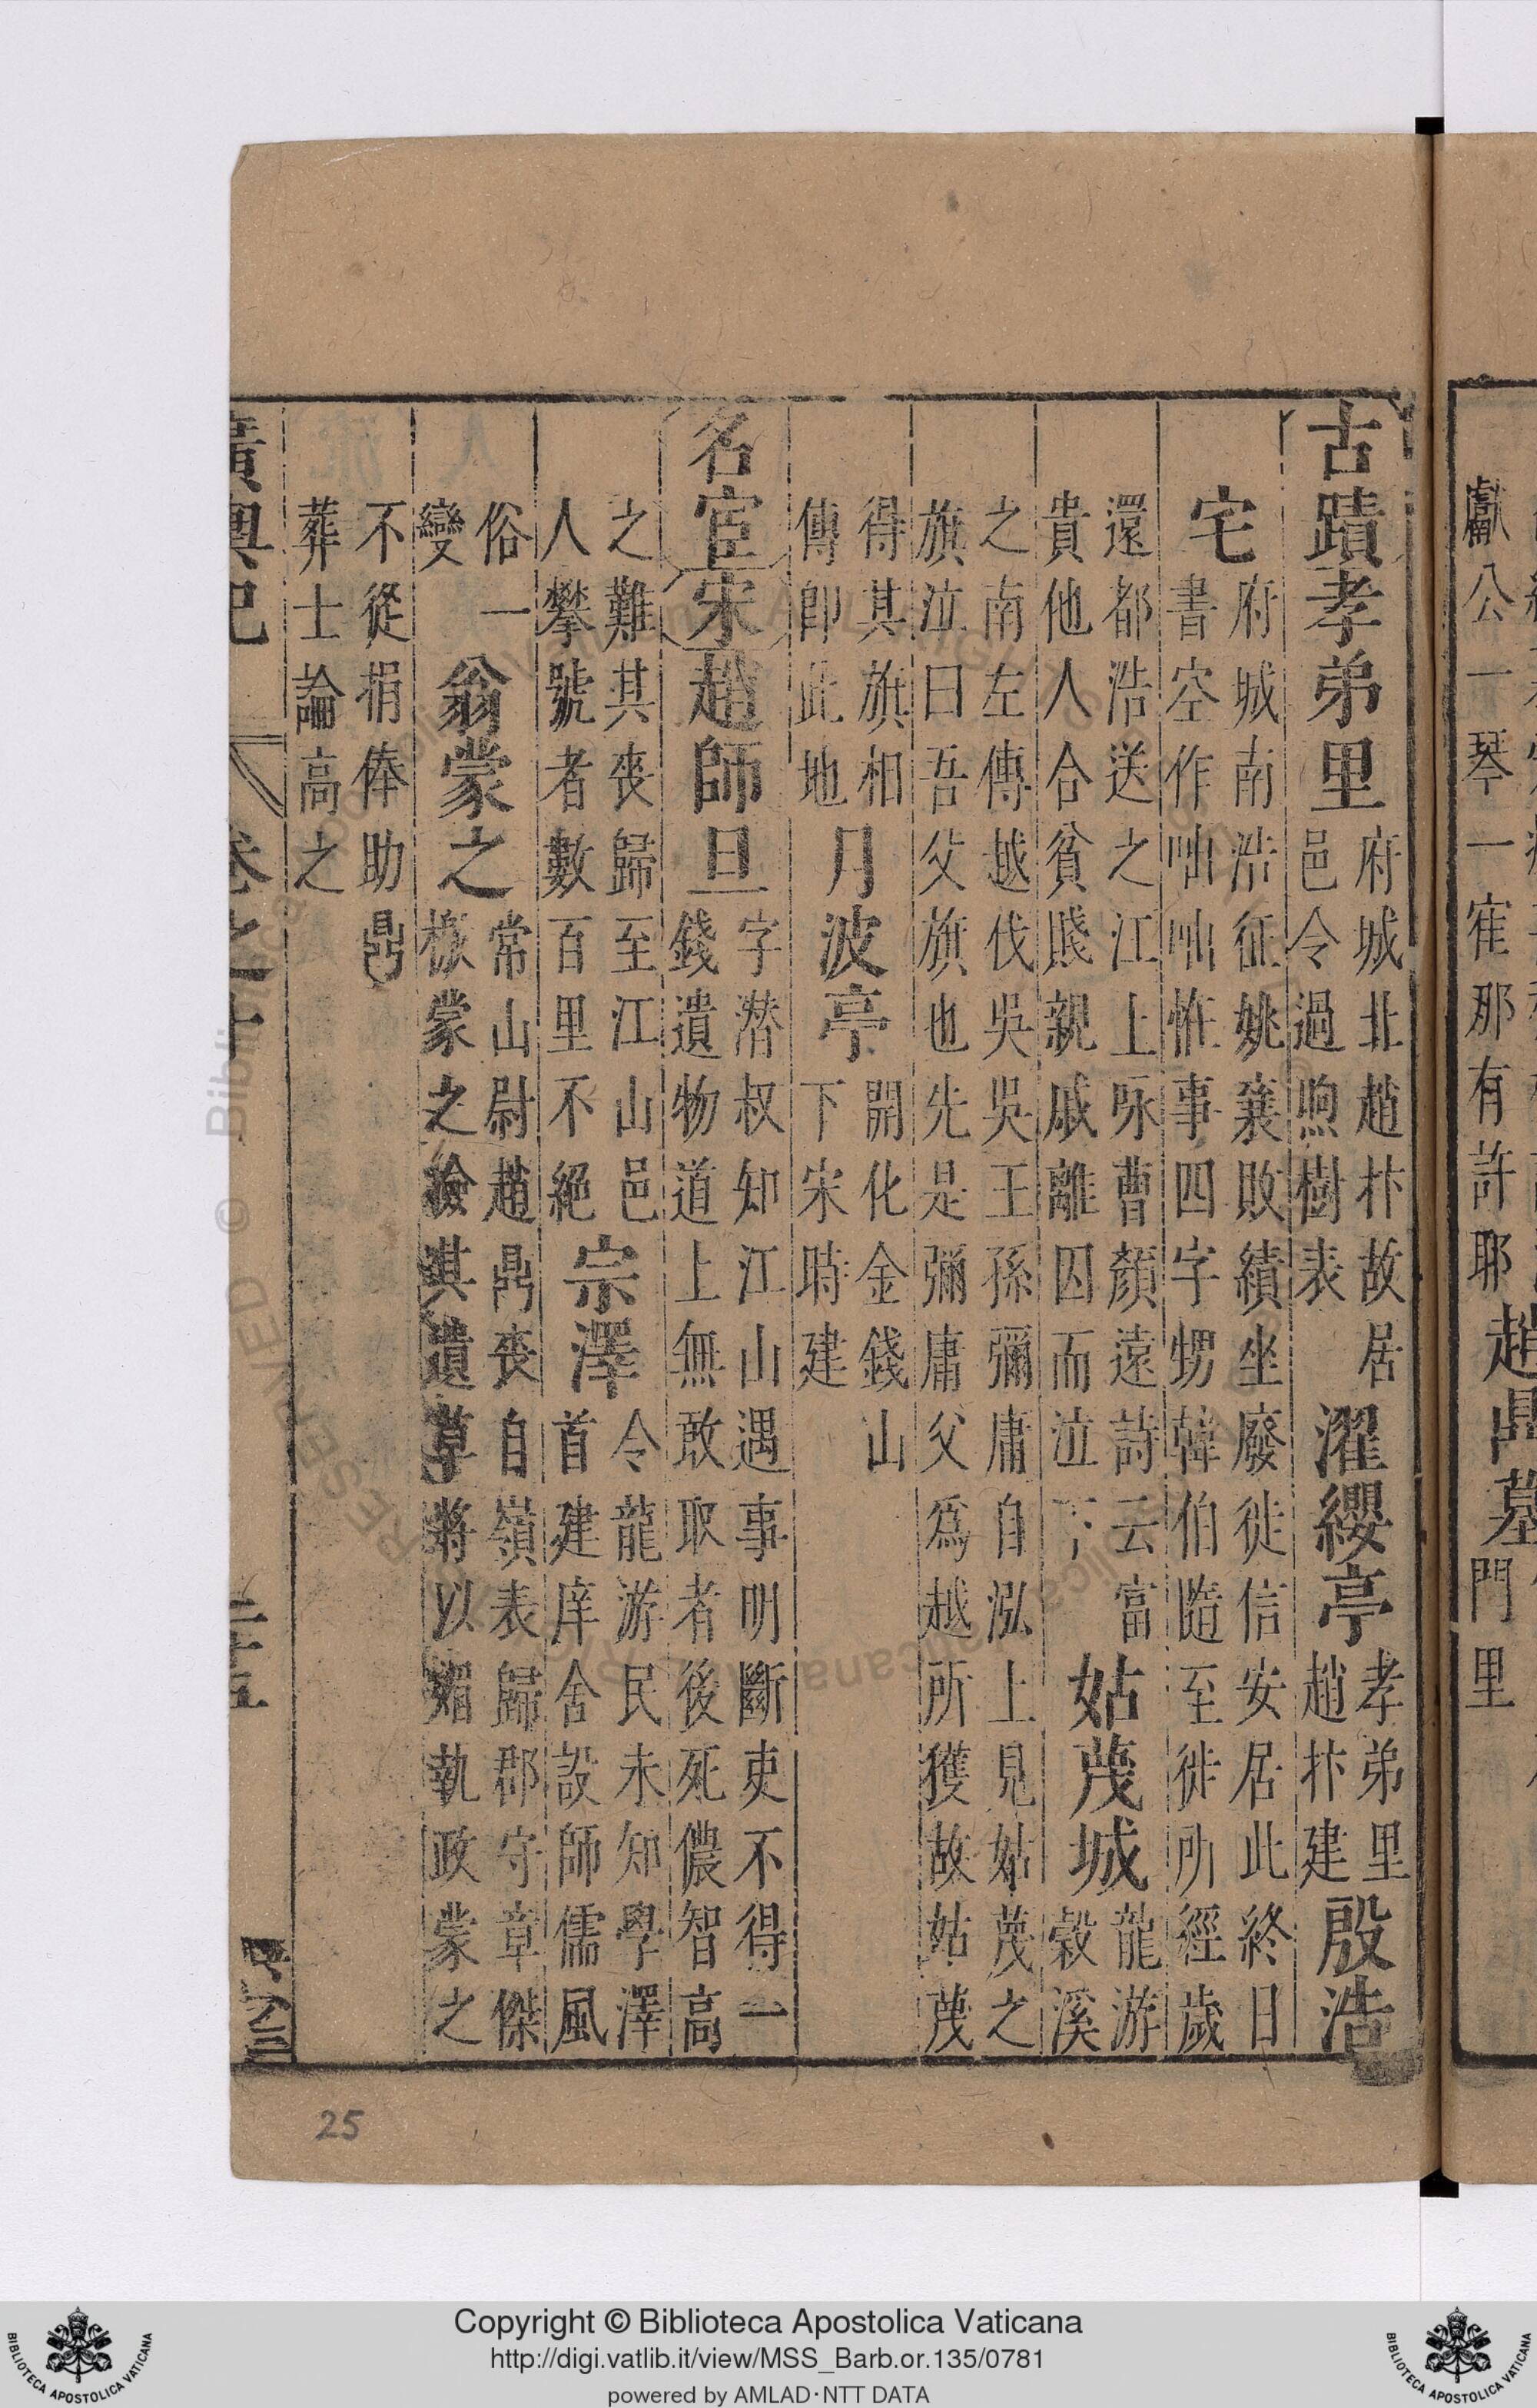 獻公一琴一寉那有許耶
趙鼎墓
門里
古蹟孝弟里
府城北趙抃故居
邑令過喣樹表
濯纓亭
孝弟里
趙抃建
殷浩
宅
府城南浩征姚襄敗績坐廢徙信安居此終日
書空作咄咄恠事四字甥韓伯隨至徙所經歲
還都浩送之江上咏曹顏遠詩云富
貴他人合貧賤親戚離因而泣下
姑蔑城
龍游
穀溪
之南左傳越伐吳吳王孫彌庸自泓上見姑蔑之
旗泣曰吾父旗也先是彌庸父為越所獲故姑蔑
得其旗相
傳卽此地
月波亭
開化金錢山
下宋時建
名宦宋趙師旦
字潛叔知江山遇事明斷吏不得一
錢遺物道上無敢取者後死儂智高
之難其喪歸至江山邑
人攀號者數百里不絕
宗澤
令龍游民未知學澤
首建庠舍設師儒風
俗一
變
翁蒙之
常山尉趙鼎喪自嶺表歸郡守章傑
檄蒙之撿其遺草將以媚執政蒙之
不從捐俸助鼎
葬士論高之
廣輿記
卷之十
二十五
Copyright © Biblioteca Apostolica Vaticana
http://digi.vatlib.it/view/MSS_Barb.or.135/0781
powered by AMLAD·NTT DATA
25
BIBLIOTECA APOSTOLICA VATICANA
BIBLIOTECA APOSTOLICA VATICANA